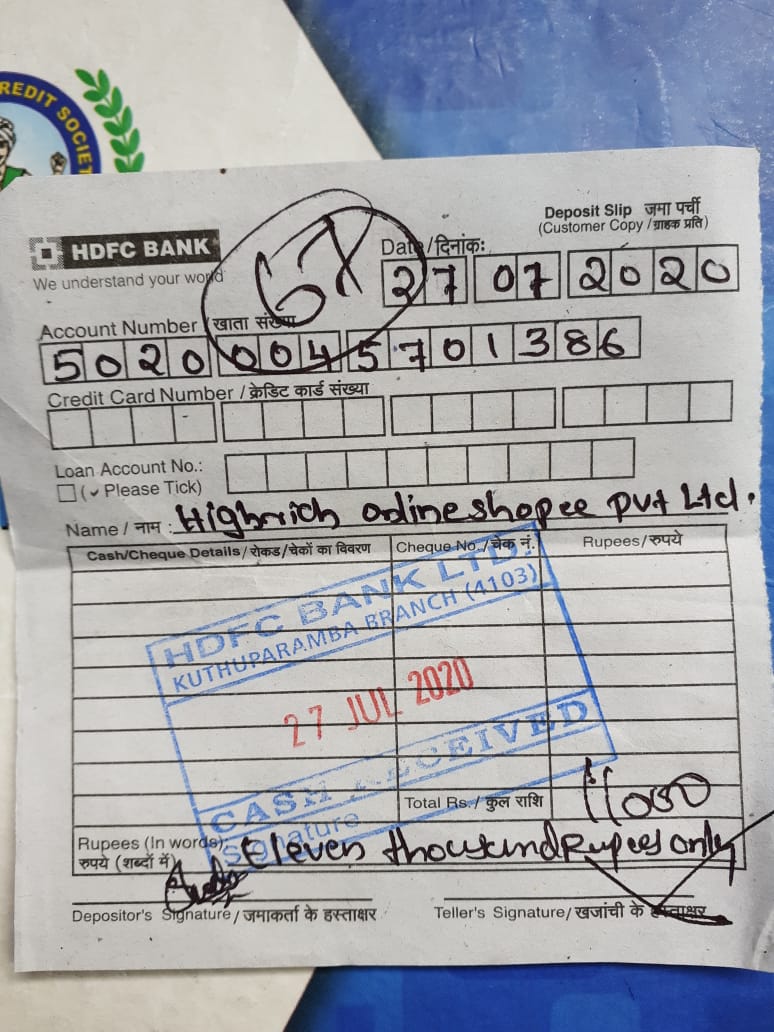 REDIT SOCIET
HDFC BANK
We understand your world
67
Deposit Slip जमा पर्ची
(Customer Copy / ग्राहक प्रति)
Date / दिनांक:
27 07 2020
Account Number / खाता संख्या
50200045701386
Credit Card Number / क्रेडिट कार्ड संख्या
Loan Account No.:
(✓ Please Tick)
Name / नाम : Highrich online shopee pvt Ltd.
Cash/Cheque Details / रोकड / चेकों का विवरण Cheque No. / चेक नं. Rupees / रुपये
HDFC BANK LTD.
KUTHUPARAMBA BRANCH (4103)
27 JUL 2020
CASH RECEIVED
Signature
Total Rs. / कुल राशि 11000
Rupees (In words)
रुपये (शब्दों में) Eleven thousand Rupees only
Depositor's Signature / जमाकर्ता के हस्ताक्षर Teller's Signature / खजांची के हस्ताक्षर